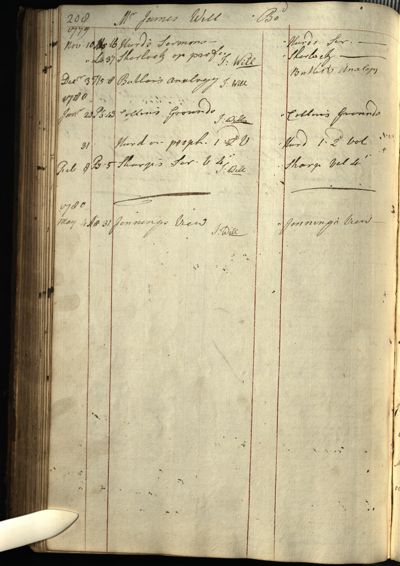 208 Mr James Will Bd
1779
Nov 10 Hurd's Sermons Hurds Ser.
37 Sherlock on J: Will Sherlock
Decr 3 8 Butler's Analogy J: Will Butlers Analogy
1780
Jan 23 Collins Grounds J: Will Collins Grounds
31 Hurd on proph. 1 & 2d V Hurd 1-2d Vol
Feb 8 5 Sharpe's Ser. V 4 J: Will Sharp Vol 4
1780
May 31 Jennings View J: Will Jenning's View